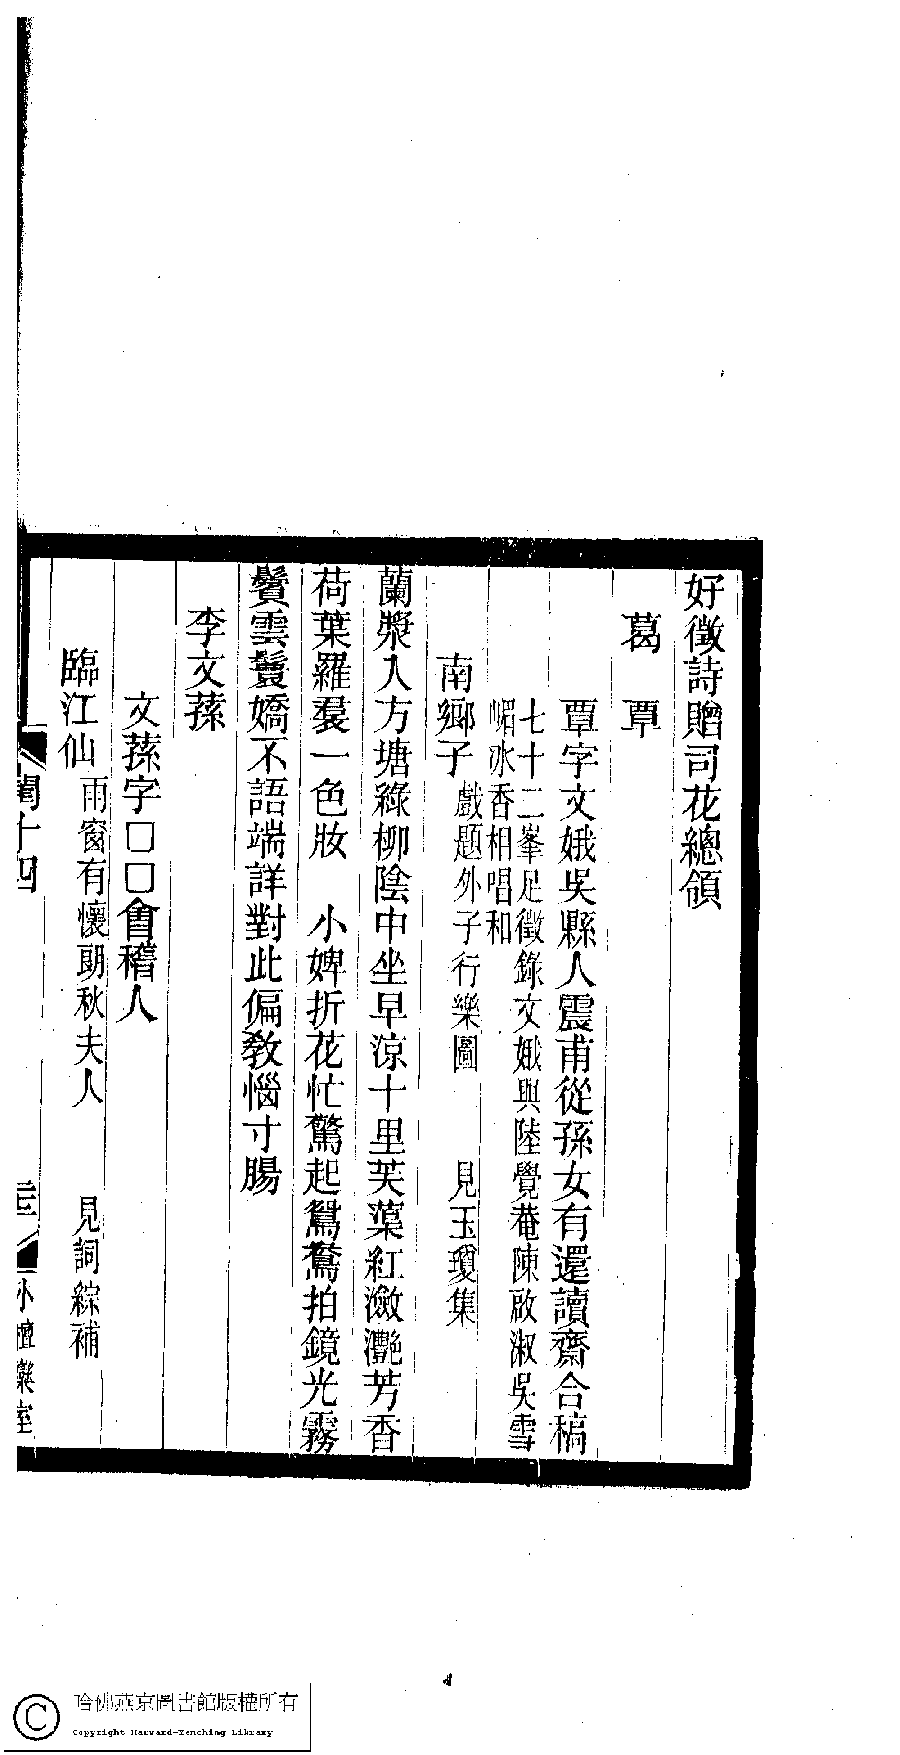 好徵詩贈司花總領
葛覃
覃字文娥吳縣人震甫從孫女有還讀齋合稿
七十二峯足徵錄文娥與陸覺菴陳啟淑吳雪
嵋冰香相唱和
南鄉子 戲題外子行樂圖 見玉瓊集
蘭槳入方塘綠柳陰中坐早涼十里芙蕖紅瀲灩芳香
荷葉羅裙一色妝 小婢折花忙驚起鴛鴦拍鏡光霧
鬢雲鬟嬌不語端詳對此偏敎惱寸腸
李文蓀
文蓀字□□會稽人
臨江仙 雨窗有懷朗秋夫人 見詞綜補
閨十四
小檀欒室
哈佛燕京圖書館版權所有
Copyright Harvard-Yenching Library